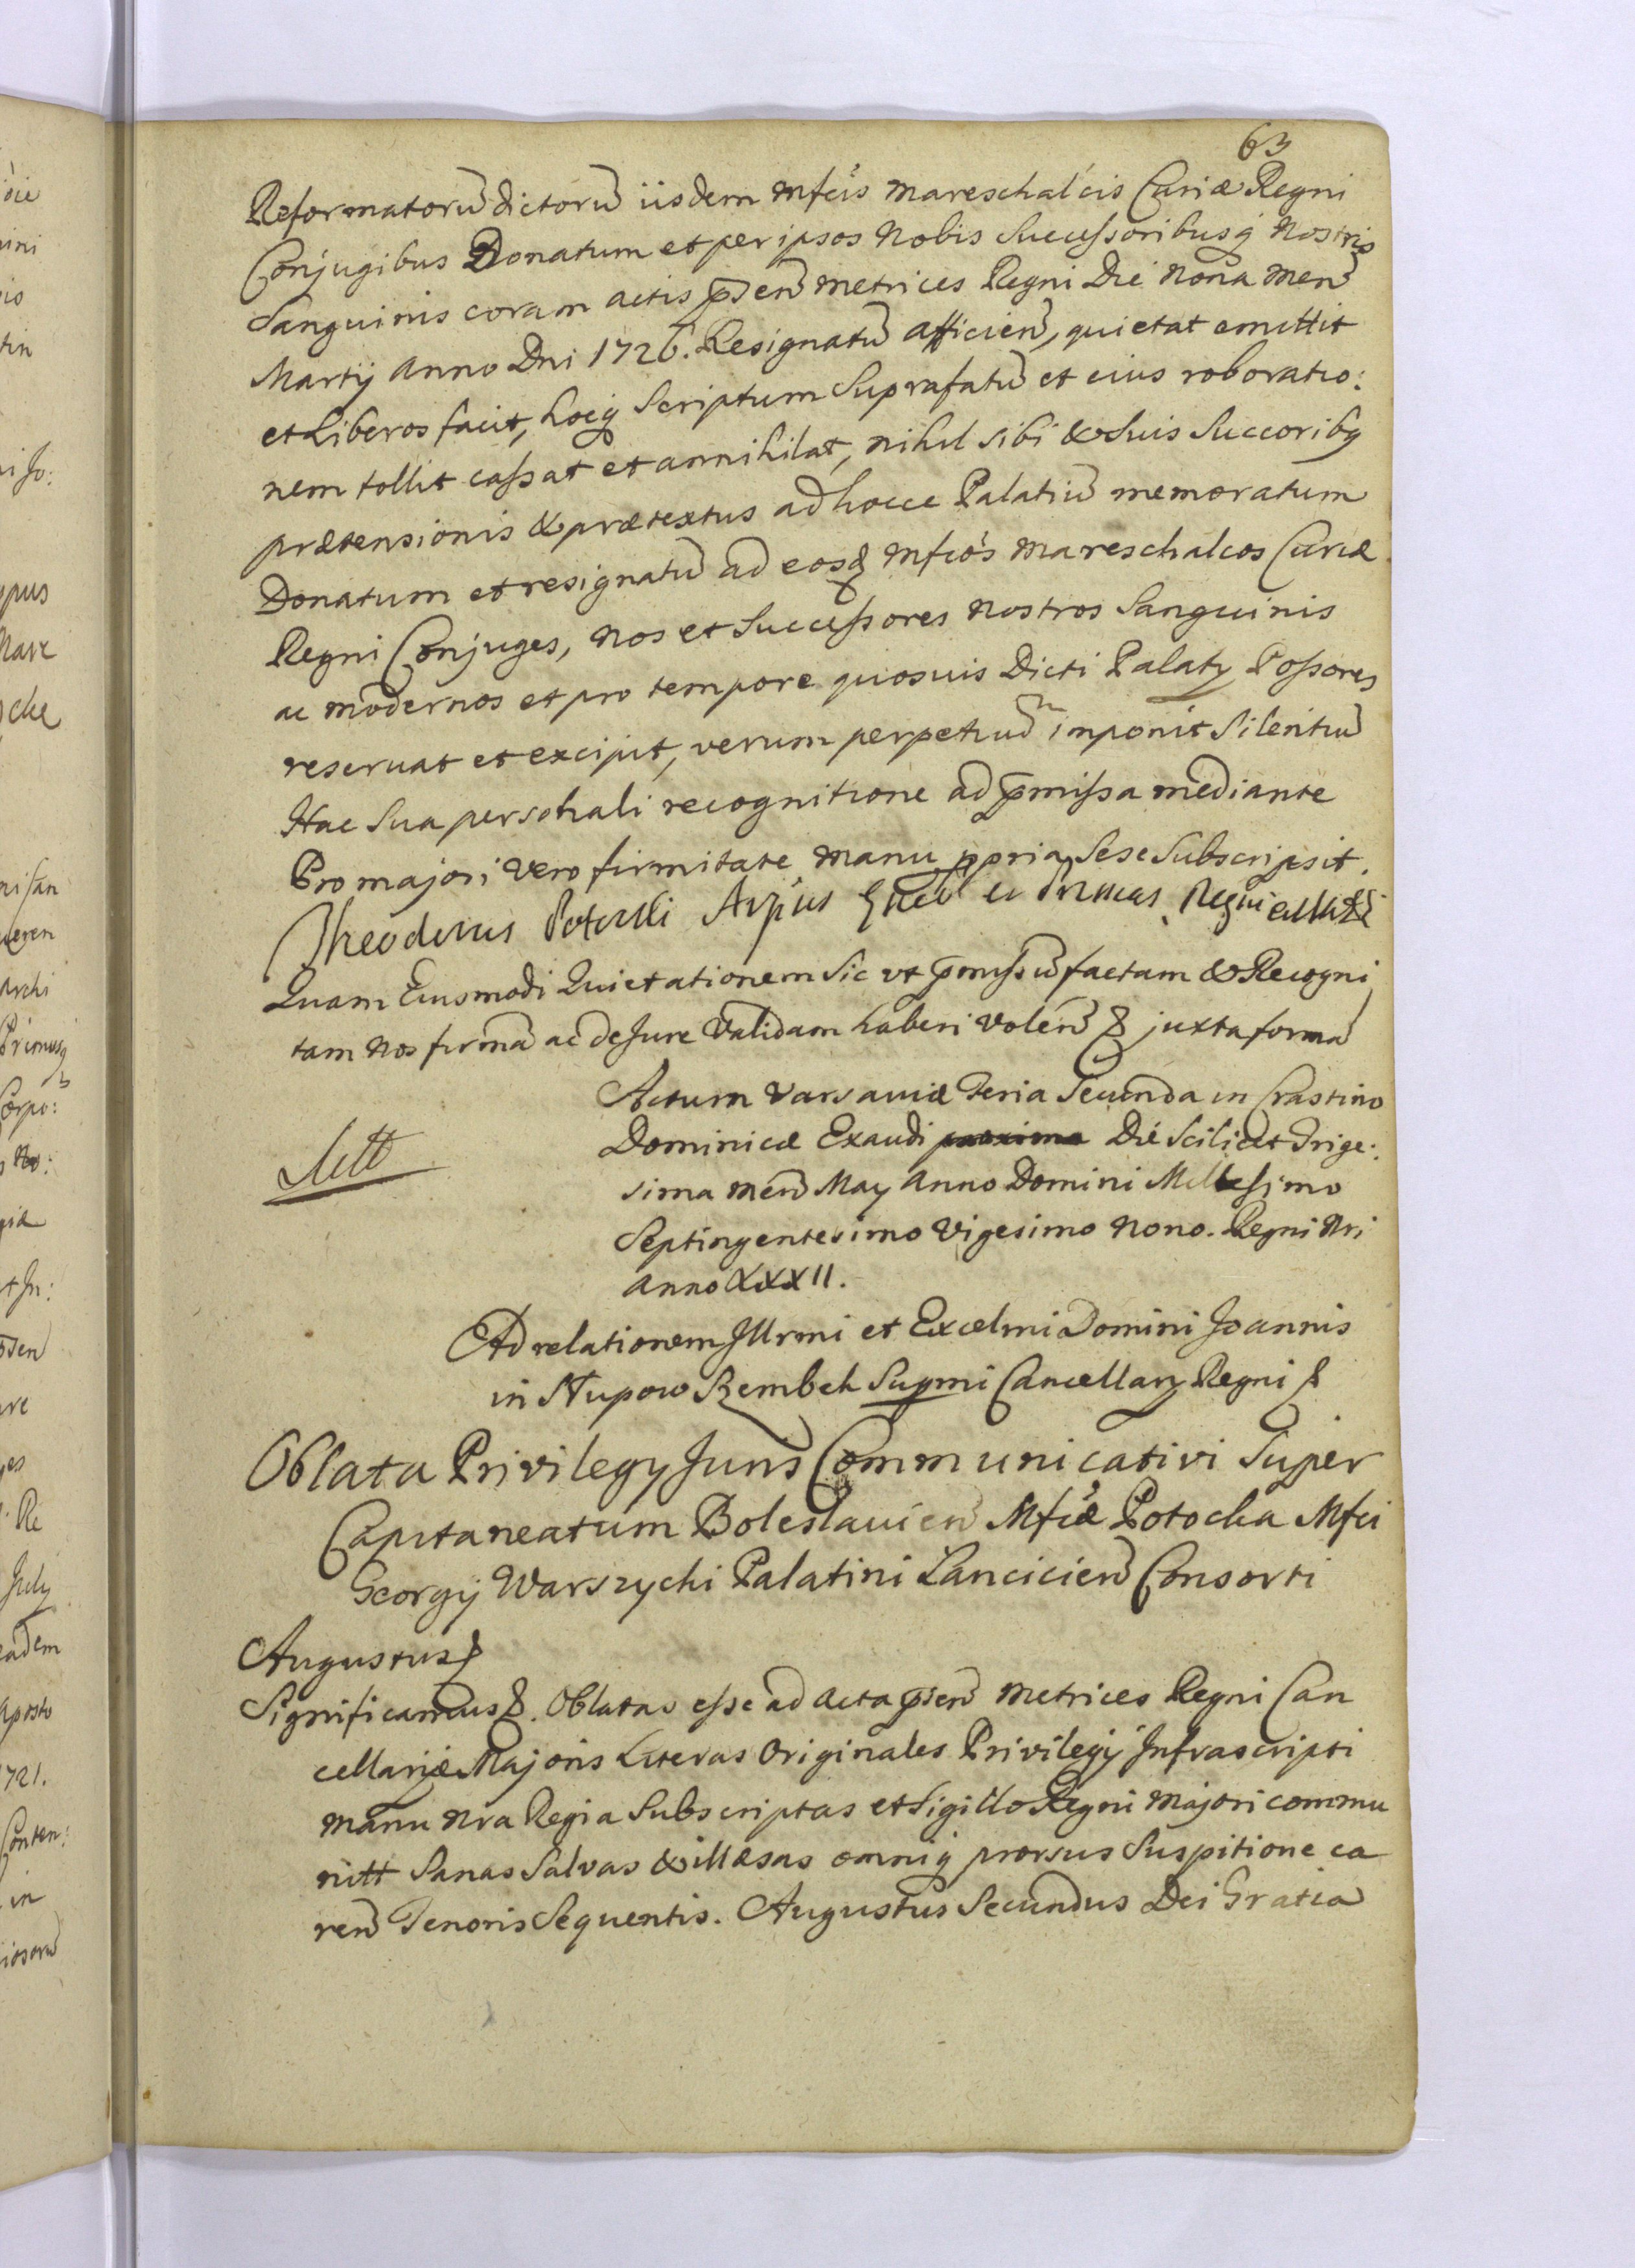 63
Reformatorū dictorū iisdem Mfcis Mareschalcis Curiæ Regni
Conjugibus Donatum et per ipsos Nobis Successoribusq Nostris
Sanguinis coram actis p̄sen Metrices Regni Die Nona Men
Martij Anno Dni 1726. Resignatū afficien, quietat emittit
et Liberos facit, hocq Scriptum Suprafatū et eius roboratio:
nem tollit cassat et annihilat, nihil sibi & Suis Succoribq
prætensionis & prætextus ad hocce Palatiū memoratum
Donatum et resignatū ad eosq Mfcos Mareschalcos Curiæ
Regni Conjuges, Nos et Successores Nostros Sanguinis
ac modernos et pro tempore quosuis Dicti Palaty Possores
reseruat et excipit, verum perpetuū imponit Silentiū
Hac Sua personali recognitione ad p̄missa mediante
Pro majori vero firmitate manu ppria Sese Subscripsit.
Theodorus Potocki Arpus Regni
Quam Eiusmodi Quietationem Sic vt p̄missū factam & Recogni
tam Nos firmā ac de Jure Validam haberi volen & juxta formā
Actum Varsaviæ Feria Secunda in Crastino
Dominicæ Exaudi proxima Die Scilicet Trige:
sima men May Anno Domini Millesimo
Septingentesimo Vigesimo Nono. Regni Nri
Anno XXXII.
Ad relationem Jllrmi et Excelmi Domini Joannis
in Słupow Szembek Supmi Cancellary Regni &
Oblata Privilegy Juris Communicativi Super
Capitaneatum Boleslauien Mfcæ Potocka Mfci
Georgij Warszycki Palatini Lancicien Consorti
Augustus &
Significamus &. Oblatas esse ad Acta p̄sen Metrices Regni Can
cellariæ Majoris Literas Originales Privilegij Infrascripti
manu Nra Regia Subscriptas et Sigillo Regni Majori commu
nitt Sanas Salvas & illæsas omniq prorsus Suspitione ca
ren Tenoris Sequentis. Augustus Secundus Dei Gratia